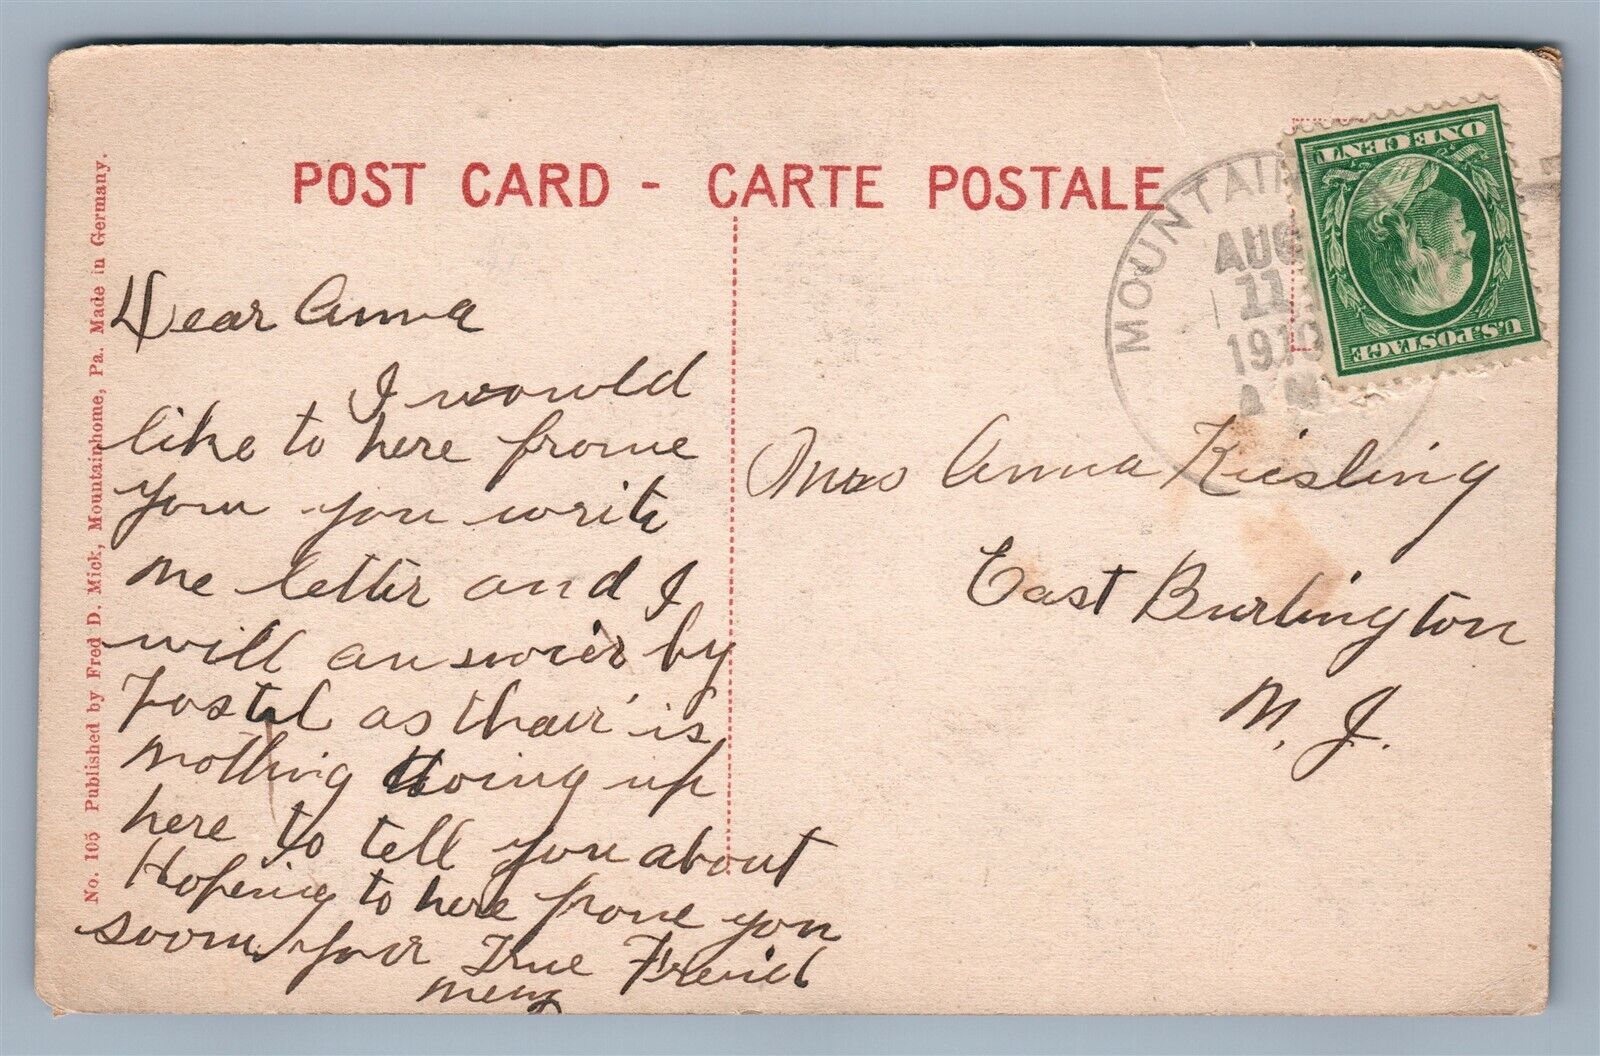 POST CARD - CARTE POSTALE
No. 105 Published by Fred D. Mick, Mountainhome, Pa. Made in Germany.
MOUNTAIN
AUG
11
1910
A M
ONE CENT
U.S. POSTAGE
Dear Anna
I would
like to here frome
you you write
me letter and I
will answier by
Postel as thair is
nothing doing up
here to tell you about
Hopeing to here frome you
soom your True Freind
Anna Kiesling
East Burlington
N. J.